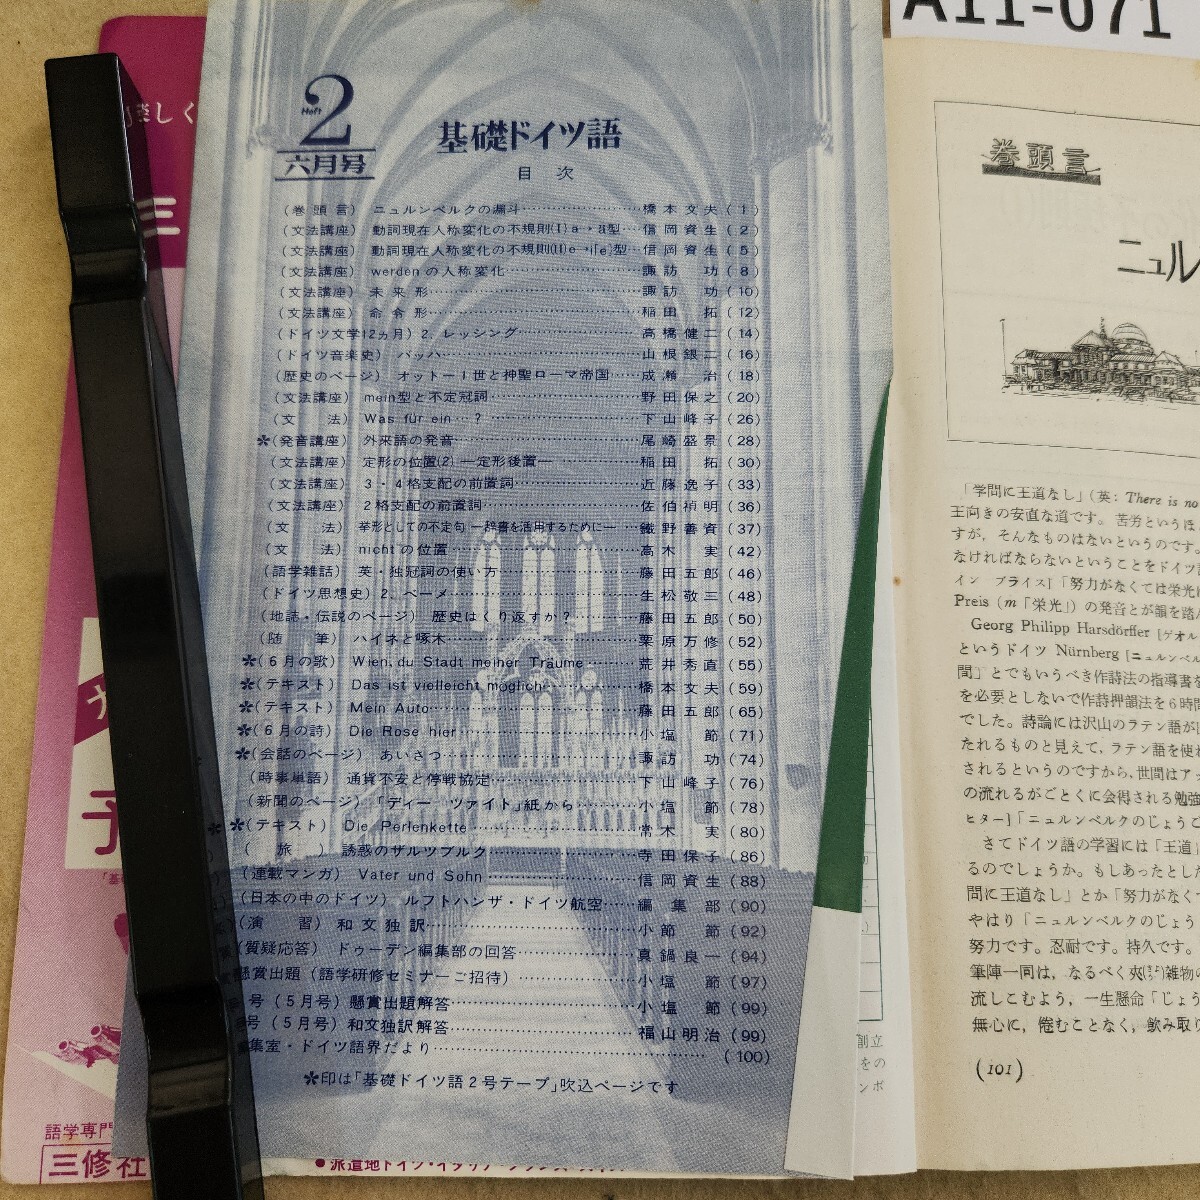 A11-071
楽しく
三
Heft 2
六月号
基礎ドイツ語
目 次
(巻頭言) ニュルンベルクの漏斗……橋本文夫(1)
(文法講座) 動詞現在人称変化の不規則(I)a→ä型…信岡資生(2)
(文法講座) 動詞現在人称変化の不規則(II)e→i[e]型…信岡資生(5)
(文法講座) werdenの人称変化……諏訪 功(8)
(文法講座) 未来形……諏訪 功(10)
(文法講座) 命令形……稲田 拓(12)
(ドイツ文学12ヵ月) 2. レッシング……高橋健二(14)
(ドイツ音楽史) バッハ……山根銀二(16)
(歴史のページ) オットーI世と神聖ローマ帝国……成瀬 治(18)
(文法講座) mein型と不定冠詞……野田保之(20)
(文 法) Was für ein…?……下山峰子(26)
✻(発音講座) 外来語の発音……尾崎盛景(28)
(文法講座) 定形の位置(2) —定形後置—……稲田 拓(30)
(文法講座) 3・4格支配の前置詞……近藤逸子(33)
(文法講座) 2格支配の前置詞……佐伯禎明(36)
(文 法) 挙形としての不定句 —辞書を活用するために—…鐵野善資(37)
(文 法) nichtの位置……高木 実(42)
(語学雑話) 英・独冠詞の使い方……藤田五郎(46)
(ドイツ思想史) 2. ベーメ……生松敬三(48)
(地誌・伝説のページ) 歴史はくり返すか?……藤田五郎(50)
(随 筆) ハイネと啄木……栗原万修(52)
✻(6月の歌) Wien, du Stadt meiner Träume……荒井秀直(55)
✻(テキスト) Das ist vielleicht möglich……橋本文夫(59)
✻(テキスト) Mein Auto……藤田五郎(65)
✻(6月の詩) Die Rose hier……小塩 節(71)
✻(会話のページ) あいさつ……諏訪 功(74)
(時事単語) 通貨不安と停戦協定……下山峰子(76)
(新聞のページ) 「ディー ツァイト」紙から……小塩 節(78)
✻(テキスト) Die Perlenkette……常木 実(80)
( 旅 ) 誘惑のザルツブルク……寺田保子(86)
(連載マンガ) Vater und Sohn……信岡資生(88)
(日本の中のドイツ) ルフトハンザ・ドイツ航空……編集部(90)
(演 習) 和文独訳……小節 節(92)
(質疑応答) ドゥーデン編集部の回答……真鍋良一(94)
懸賞出題(語学研修セミナーご招待)……小塩 節(97)
号(5月号)懸賞出題解答……小塩 節(99)
号(5月号)和文独訳解答……福山明治(99)
集室・ドイツ語界だより……(100)
✻印は「基礎ドイツ語2号テープ」吹込ページです
語学専門
三修社
●派遣地ドイツ・イタリア・フランス・スイス
創立
をの
ンボ
巻頭言
ニュル
「学問に王道なし」(英: There is no
王向きの安直な道です。苦労というほ
すが，そんなものはないというのです。
なければならないということをドイツ語
イン プライス]「努力がなくては栄光は
Preis (m「栄光」) の発音とが韻を踏ん
Georg Philipp Harsdörffer [ゲオル
というドイツ Nürnberg [ニュルンベル
間」とでもいうべき作詩法の指導書を
を必要としないで作詩押韻法を6時間
でした。詩論には沢山のラテン語が
たれるものと見えて，ラテン語を使わ
されるというのですから，世間はアッ
の流れるがごとくに会得される勉強
ヒター]「ニュルンベルクのじょうご
さてドイツ語の学習には「王道」
るのでしょうか。もしあったとした
問に王道なし」とか「努力がなくて
やはり「ニュルンベルクのじょう
努力です。忍耐です。持久です。
筆陣一同は，なるべく夾雑物の
流しこむよう，一生懸命「じょう
無心に，倦むことなく，飲み取り
(101)